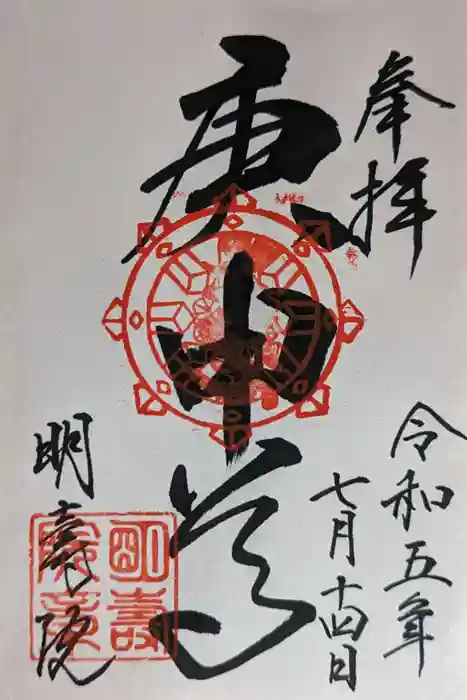 奉拝
令和五年
七月十四日
庚申尊
明壽院
明壽